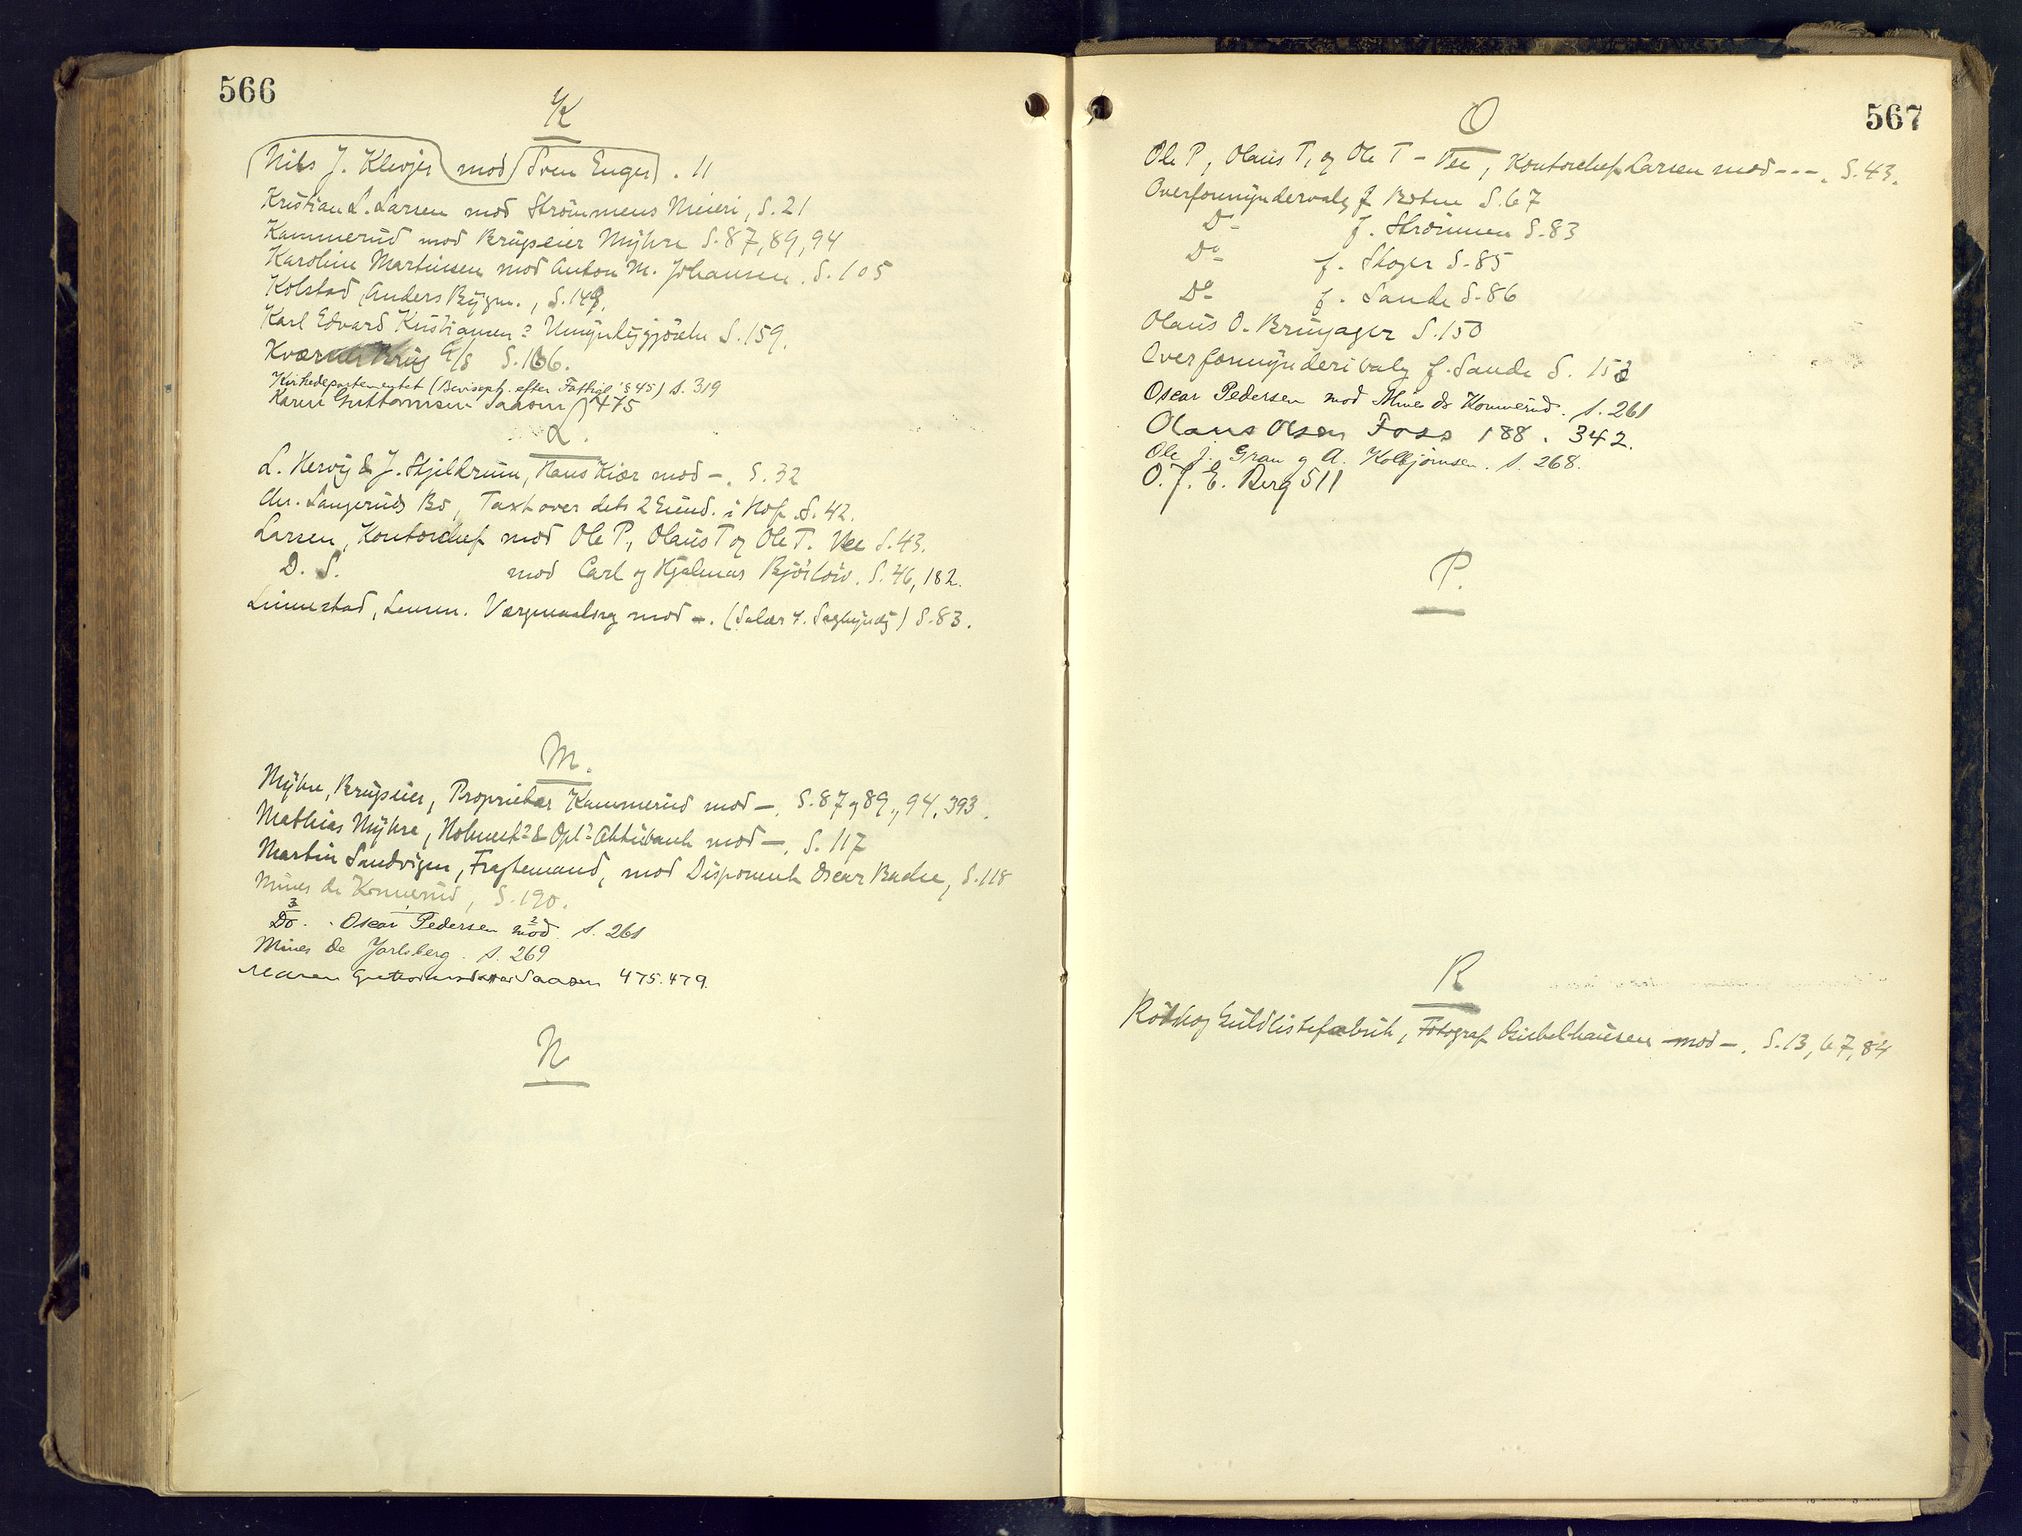 566
K
Nils J. Klevjer mod Sven Enger . 11
Kristian L. Larsen mod Strömmens Meieri, S. 21
Kammerud mod Brugseier Myhre S. 87, 89, 94
Karoline Martinsen mod Anton M. Johansen. S. 105
Kolstad, Anders Bygm., S. 149.
Karl Edvard Kristiansen? Umyndiggjörelse S. 159.
Kværner Brug A/S S. 166.
Kirkedepartementet (Bevisopt. efter Fattigl. § 45) s. 319
Karen Guttormsen Saasen 475
L.
L. Hervig & J. Skjelkrum, Hans Kiær mod –. S. 32
Chr. Langeruds Bo, Taxt over dets 2 Eiend. i Hof S. 42.
Larsen, Kontorchef mod Ole P, Olaus T og Ole T. Vee S. 43.
D. S. mod Carl og Hjalmar Björlöw. S. 46, 182.
Linnestad, Lensm. Værgemaalssag mod –. (Salær f. ) S. 83.
M.
Myhre, Brugseier, Proprietær Kammerud mod –. S. 87 og 89, 94, 393.
Mathias Myhre, Holmest? & Opl? Aktiebank mod –. S. 117
Martin Sandvigen, Fragtemand, mod Disponent Oscar Bache, S. 118
Mines de Konnerud, S. 190.
3 Do. Oscar Pedersen 2 mod. s. 261
Mines de Jarlsberg. s. 269
Maren Guttormsdatter Saasen 475. 479.
N
567
O
Ole P, Olaus T, og Ole T – Vee, Kontorchef Larsen mod - - -. S. 43.
Overformyndervalg f Botne S. 67
Do f. Strömmen S. 83
Do f. Skoger S. 85
Do f. Sande S. 86
Olaus O. Bruyager S. 150
Overformynderivalg f. Sande S. 153
Oscar Pedersen mod Mines de Konnerud. s. 261
Olaus Olsen Foss 188. 342.
Ole J. Gran og A. Kolbjørnsen. s. 268.
O. J. E. Berg 511
P.
R
Rödskog Guldlistefabrik, Fotograf Giebelhausen mod –. S. 13, 67, 84